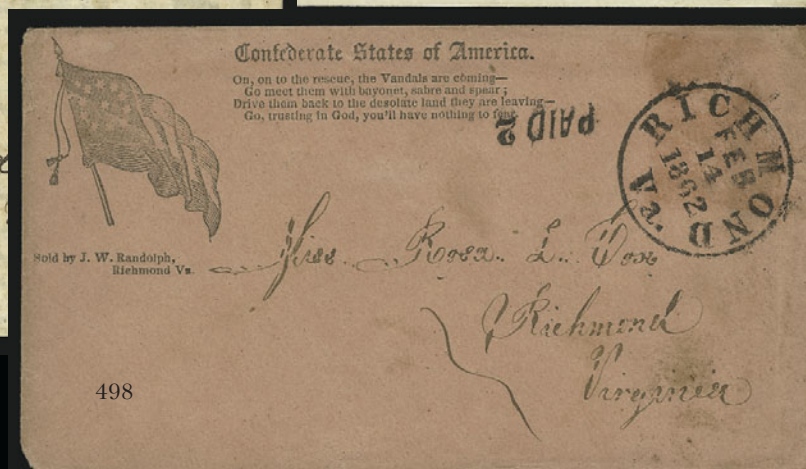 Confederate States of America.
On, on to the rescue, the Vandals are coming—
Go meet them with bayonet, sabre and spear;
Drive them back to the desolate land they are leaving—
Go, trusting in God, you'll have nothing to fear.
PAID 2
RICHMOND VA.
FEB
14
1862
Sold by J. W. Randolph,
Richmond Va.
Miss Rosa L. Vox
Richmond
Virginia
498